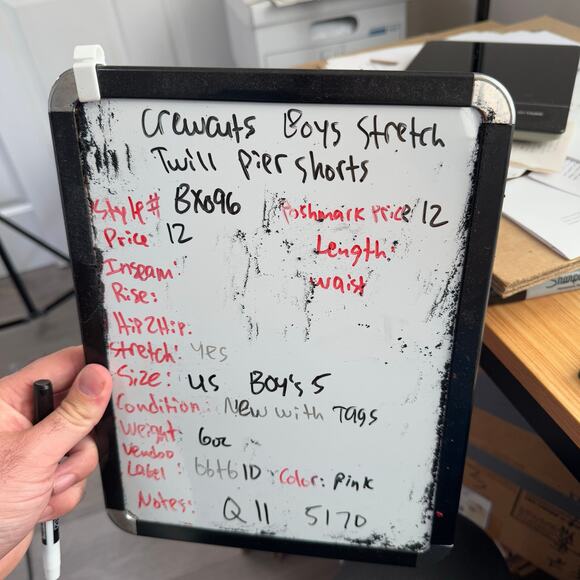 Crewcuts Boys Stretch
Twill pier shorts
Style# BX096 Poshmark Price 12
Price 12 Length:
Inseam: waist
Rise:
Hip2Hip:
Stretch: yes
Size: US Boy's 5
Condition: New with Tags
Weight: 6oz
Vendoo
Label: Color: pink
Notes: Q 11 5170
Sharpie